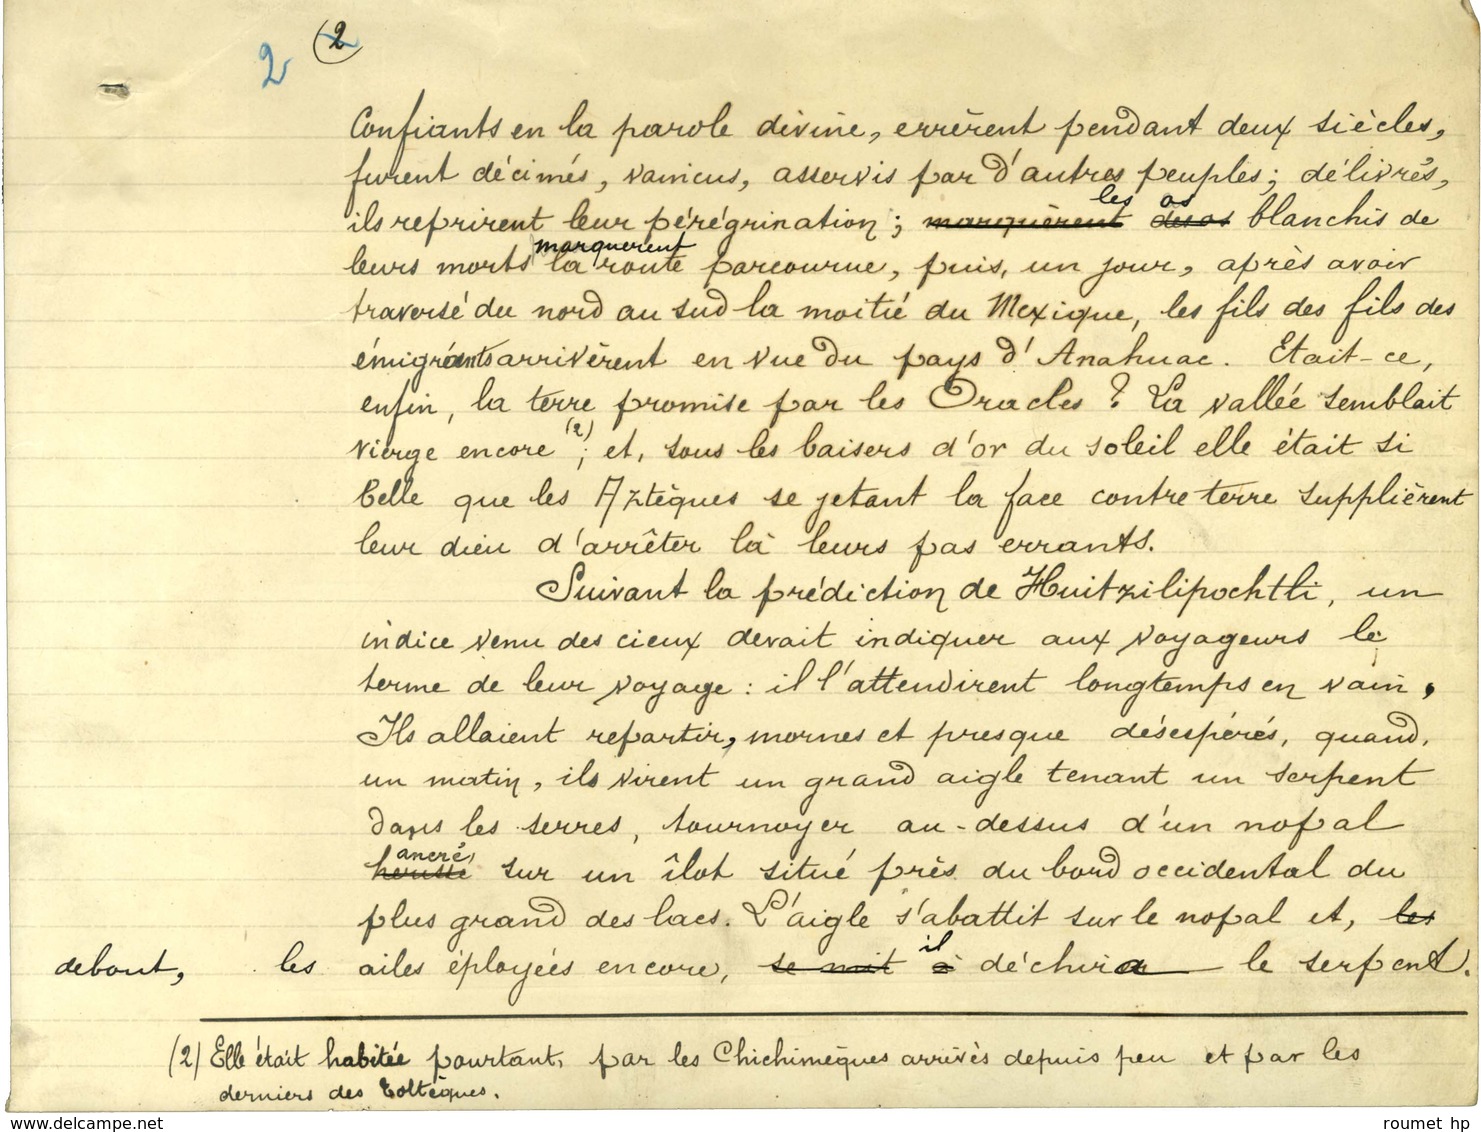 2 (2)
Confiants en la parole divine, errèrent pendant deux siècles,
furent décimés, vaincus, asservis par d'autres peuples; délivrés,
les os
ils reprirent leur pérégrination; marquèrent des os blanchis de
marquerent
leurs morts la route parcourue, puis, un jour, après avoir
traversé du nord au sud la moitié du Mexique, les fils des fils des
émigrants arrivèrent en vue du pays d'Anahuac. Etait-ce,
enfin, la terre promise par les Oracles? La vallée semblait
vierge encore (2); et, sous les baisers d'or du soleil elle était si
belle que les Aztèques se jetant la face contre terre supplièrent
leur dieu d'arrêter là leurs pas errants.
Suivant la prédiction de Huitzilipochtli, un
indice venu des cieux devait indiquer aux voyageurs le
terme de leur voyage: il l'attendirent longtemps en vain.
Ils allaient repartir, mornes et presque désespérés, quand,
un matin, ils virent un grand aigle tenant un serpent
dans les serres, tournoyer au-dessus d'un nopal
ancré,
sur un îlot situé près du bord occidental du
plus grand des lacs. L'aigle s'abattit sur le nopal et, les
il
debout, les ailes éployées encore, se mit à déchira le serpent.
(2) Elle était habitée pourtant, par les Chichimèques arrivés depuis peu et par les
derniers des Toltèques.
roumet hp